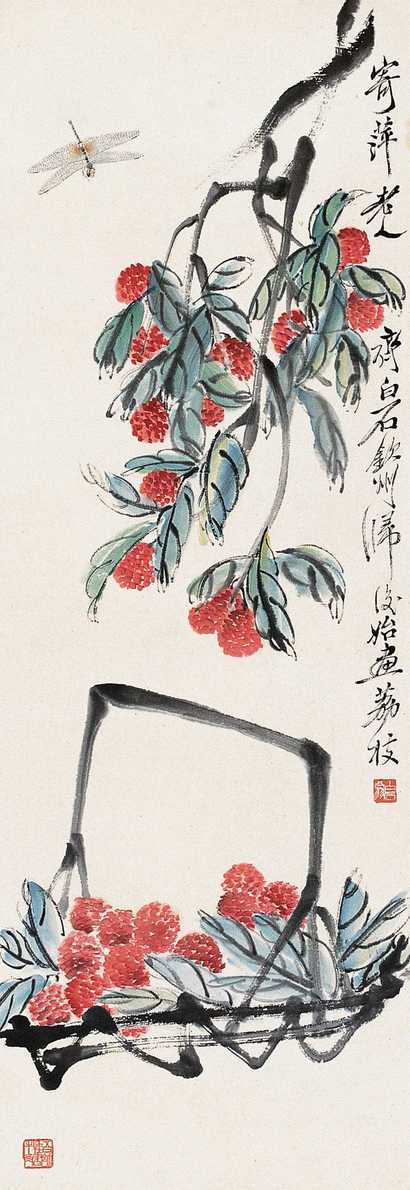 寄萍老人
齊白石欽州歸後始畫荔枝